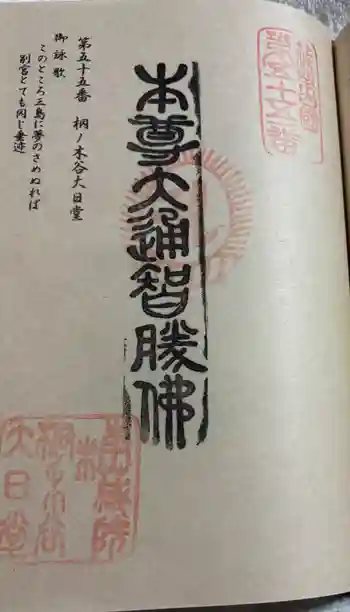 第五十五番
本尊大通智勝佛
第五十五番 栩ノ木谷大日堂
御詠歌
このところ三島に夢のさめぬれば
別宮とても同じ垂迹
大日堂